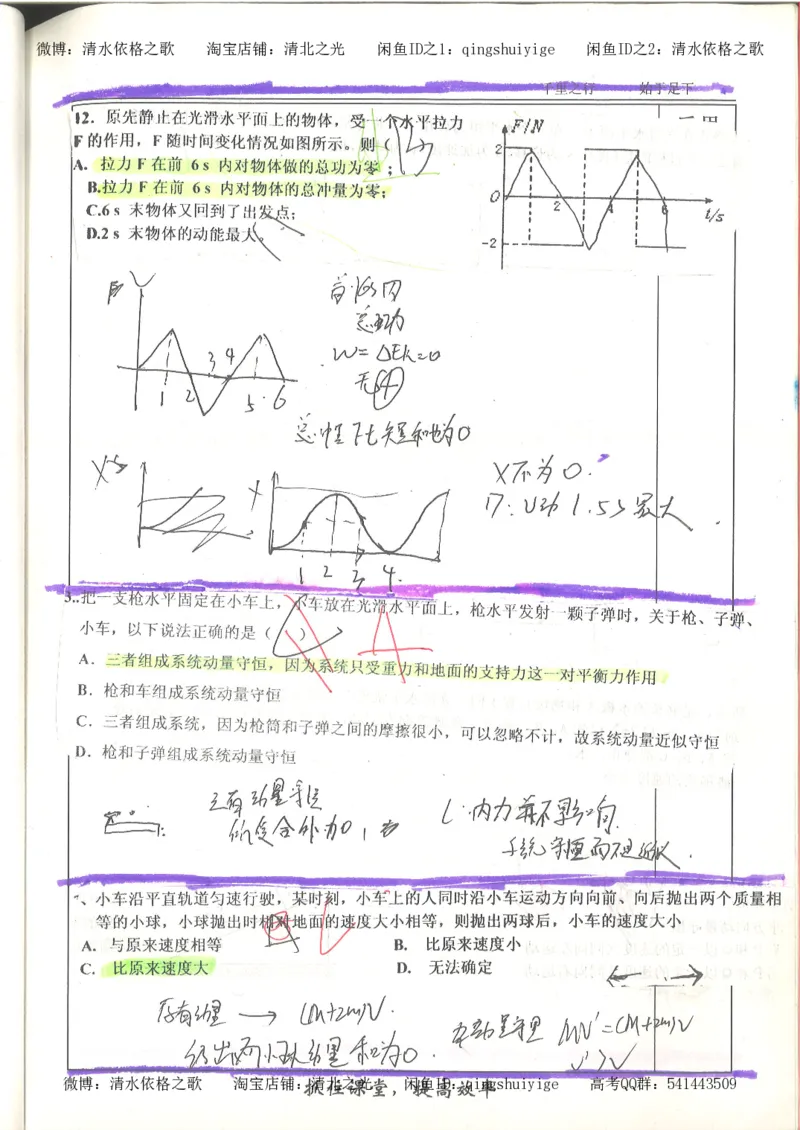 微博：清水依格之歌 淘宝店铺：清北之光 闲鱼ID之1：qingshuiyige 闲鱼ID之2：清水依格之歌
千里之行 始于足下
12．原先静止在光滑水平面上的物体，受一个水平拉力
F 的作用，F 随时间变化情况如图所示。则（
A. 拉力 F 在前 6 s 内对物体做的总功为零；
B.拉力 F 在前 6 s 内对物体的总冲量为零；
C.6 s 末物体又回到了出发点；
D.2 s 末物体的动能最大。
F/N
2
0
2
4
6
t/s
-2
V
1 2 3 4 5 6
W=ΔEk=0
X
X不为0.
1 2 3 4
3..把一支枪水平固定在小车上，小车放在光滑水平面上，枪水平发射一颗子弹时，关于枪、子弹、
小车，以下说法正确的是（ ）
A
A．三者组成系统动量守恒，因为系统只受重力和地面的支持力这一对平衡力作用
B．枪和车组成系统动量守恒
C．三者组成系统，因为枪筒和子弹之间的摩擦很小，可以忽略不计，故系统动量近似守恒
D．枪和子弹组成系统动量守恒
、小车沿平直轨道匀速行驶，某时刻，小车上的人同时沿小车运动方向向前、向后抛出两个质量相
等的小球，小球抛出时相对地面的速度大小相等，则抛出两球后，小车的速度大小
A. 与原来速度相等 B. 比原来速度小
C. 比原来速度大 D. 无法确定
原有动量 → (M+2m)V.
抛出两小球动量和为0.
MV'=(M+2m)V
V'>V
微博：清水依格之歌 淘宝店铺：清北之光 闲鱼ID：qingshuiyige 高考QQ群：541443509
抓住课堂，提高效率